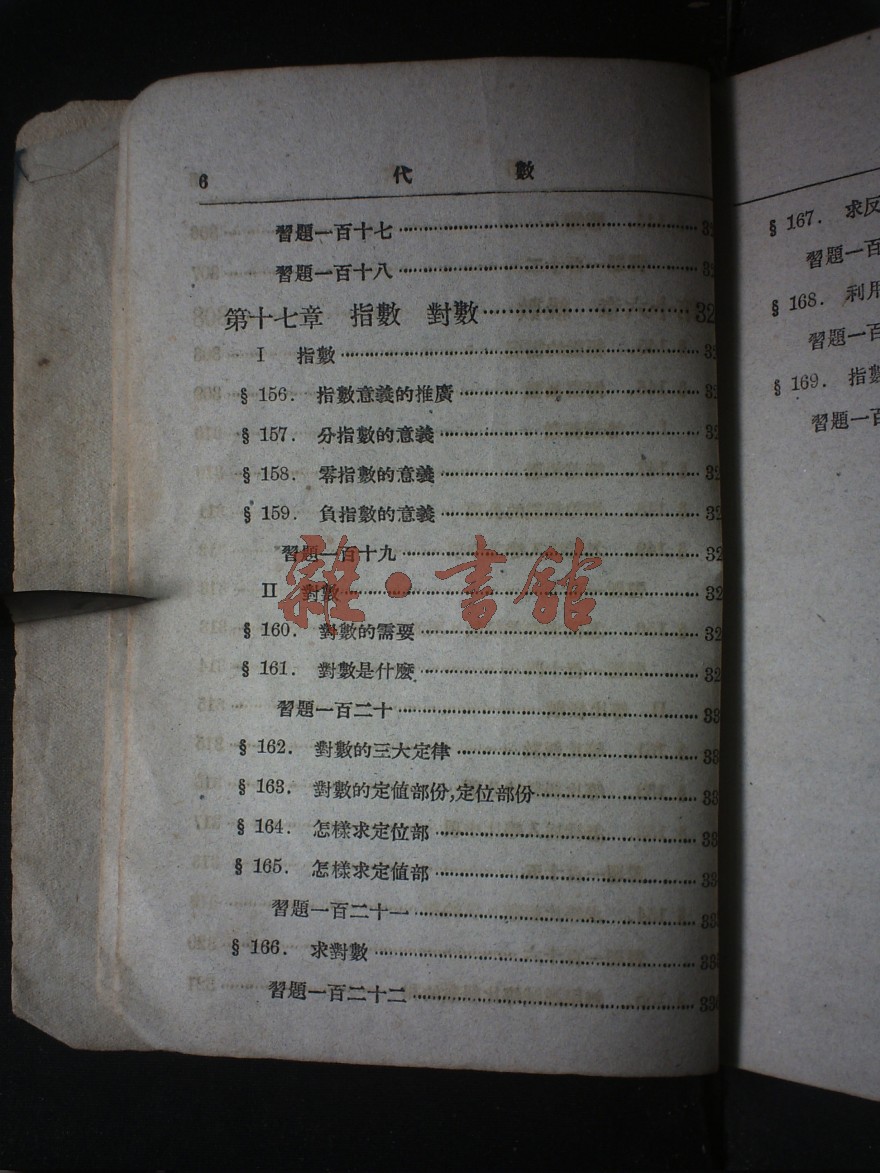 6 代 數
習題一百十七
習題一百十八
第十七章 指數 對數 32
I 指數
§ 156. 指數意義的推廣
§ 157. 分指數的意義 32
§ 158. 零指數的意義 32
§ 159. 負指數的意義 32
習題一百十九 32
II 對數 32
§ 160. 對數的需要 32
§ 161. 對數是什麼 32
習題一百二十 33
§ 162. 對數的三大定律 33
§ 163. 對數的定值部份,定位部份 33
§ 164. 怎樣求定位部 33
§ 165. 怎樣求定值部 33
習題一百二十一 33
§ 166. 求對數 33
習題一百二十二 33
§ 167. 求反
習題一百
§ 168. 利用
習題一百
§ 169. 指數
習題一百
雜·書館